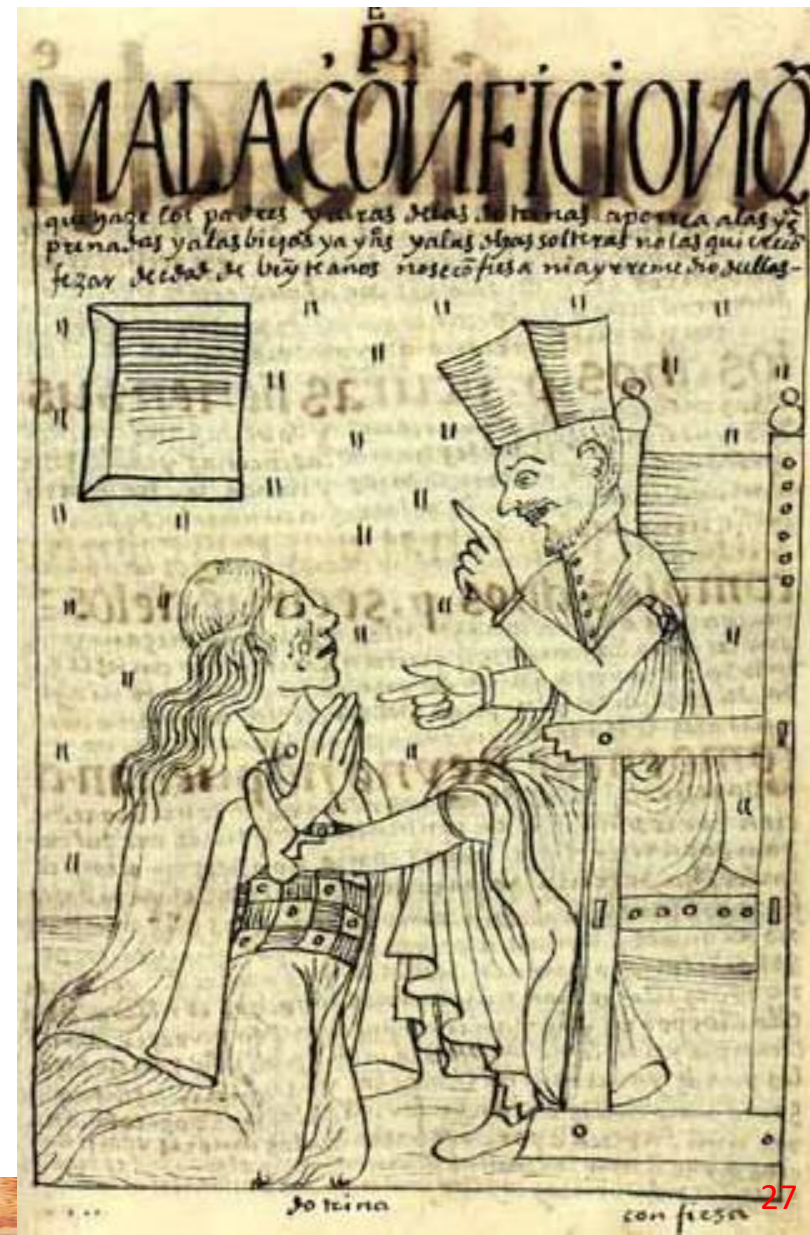 P
MALACŌNFICIONQ̃
que haze los padres y curas delas dotrinas aporrea alas
prenadas yalas biejas ya yñs yalas dhas solteras nolas quiere cō
fezar de edad de beynte anos nose cōfiesa niay rremedio dellas-
dotrina
confiesa
27